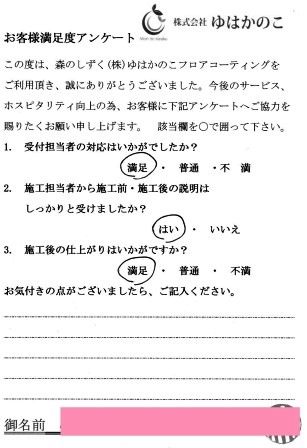 Mori no Shizuku
株式会社 ゆはかのこ
お客様満足度アンケート
この度は、森のしずく(株)ゆはかのこフロアコーティングを
ご利用頂き、誠にありがとうございました。今後のサービス、
ホスピタリティ向上の為、お客様に下記アンケートへご協力を
賜りたくお願い申し上げます。 該当欄を○で囲って下さい。
1. 受付担当者の対応はいかがでしたか?
満足 ・ 普通 ・不 満
2. 施工担当者から施工前・施工後の説明は
しっかりと受けましたか?
はい ・ いいえ
3. 施工後の仕上がりはいかがですか?
満足 ・ 普通 ・ 不満
お気付きの点がございましたら、ご記入ください。
御名前